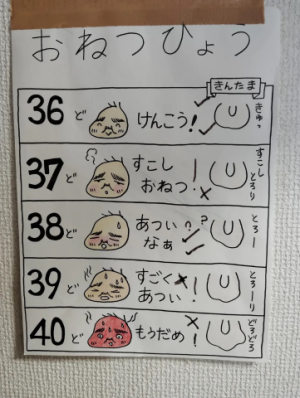 おねつひょう
きんたま
36ど けんこう! きゅっ
37ど すこし おねつ! すこしとろり
38ど あつい なぁ?? とろー
39ど すごく あつい! とろーり
40ど もうだめ! どろどろ